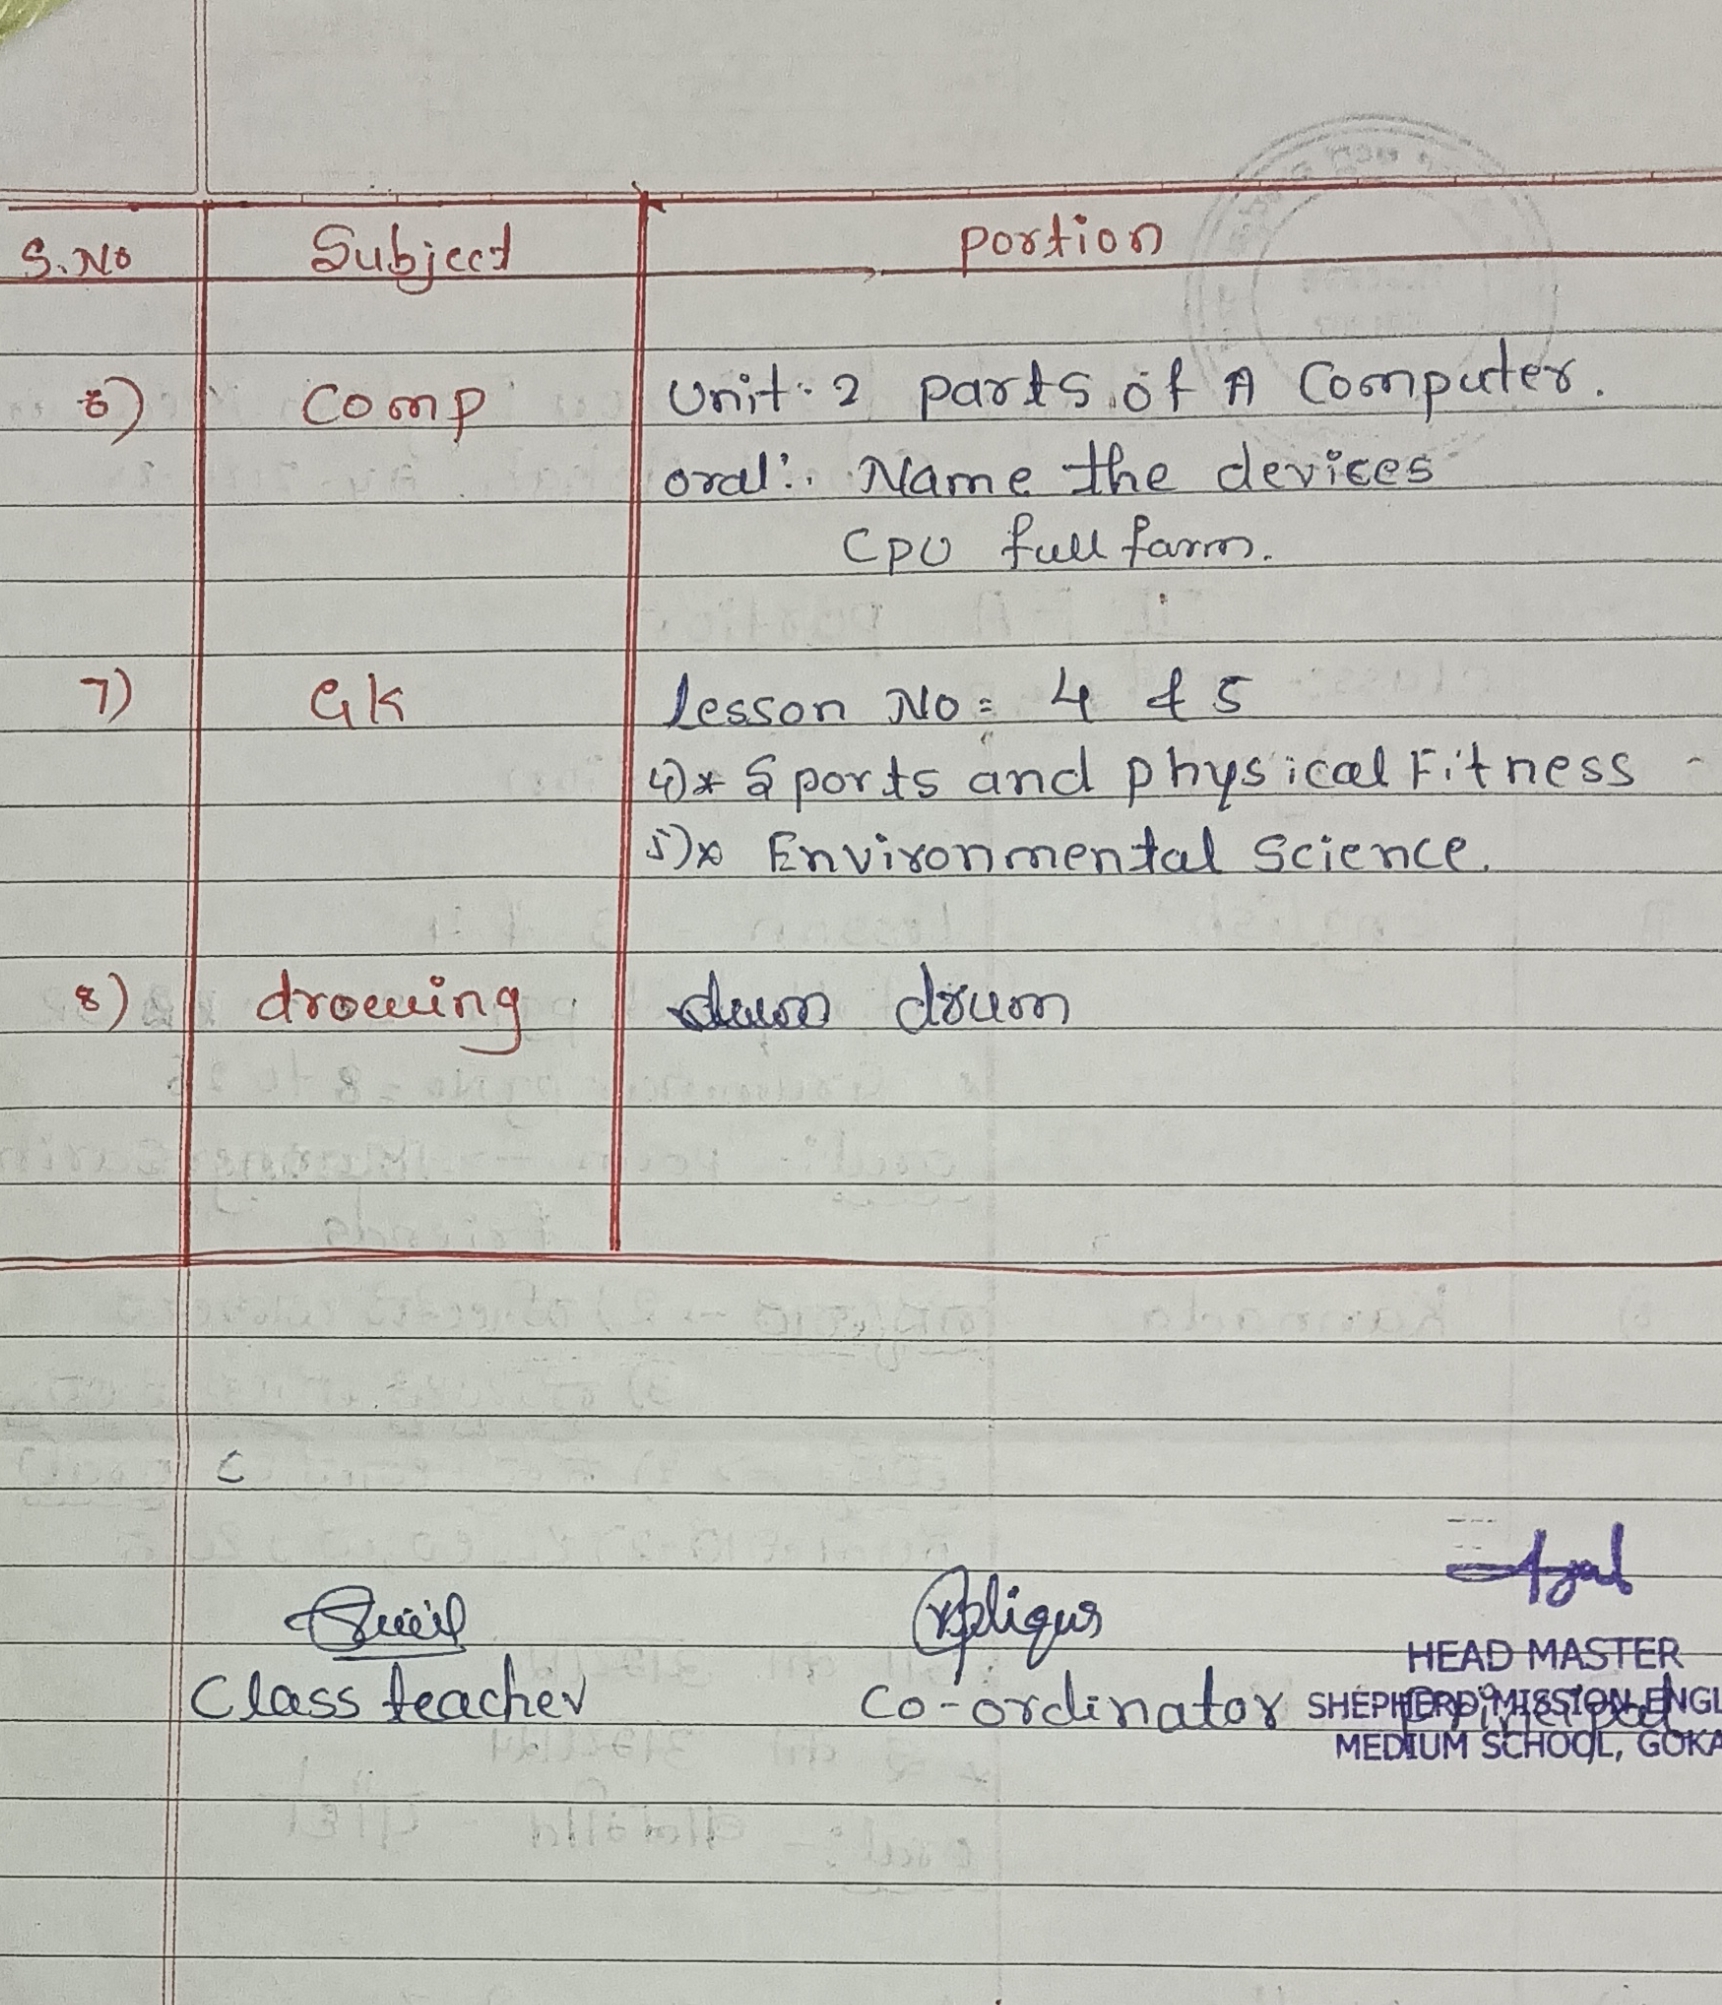 S.No Subject portion
6) Comp Unit:2 parts of A Computer.
oral:. Name the devices
CPU full farm.
7) GK Lesson No= 4 & 5
4)* Sports and physical Fitness
5)* Environmental Science.
8) drowing drum
Class teacher Co-ordinator Principal
HEAD MASTER
SHEPHERD MISSION ENGL
MEDIUM SCHOOL, GOKA